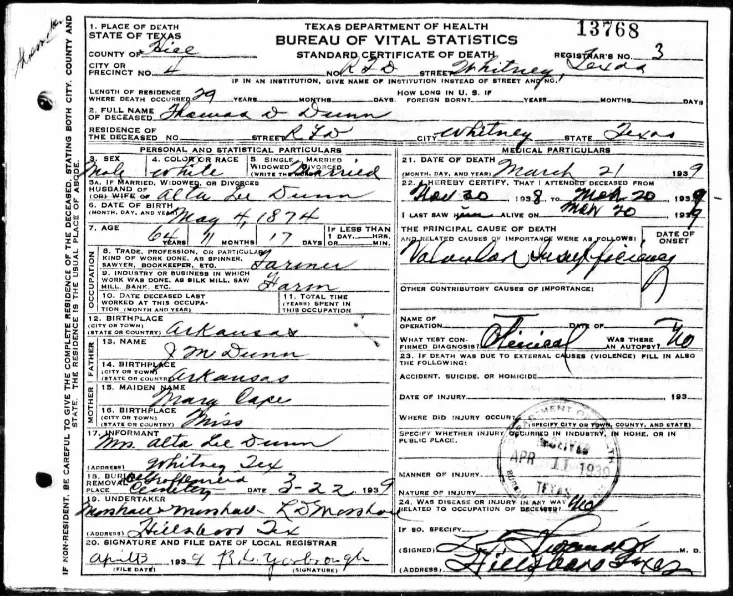 TEXAS DEPARTMENT OF HEALTH
BUREAU OF VITAL STATISTICS
STANDARD CERTIFICATE OF DEATH
13768
REGISTRAR'S NO. 3
1. PLACE OF DEATH
STATE OF TEXAS
COUNTY OF Hill
CITY OR PRECINCT NO. 4 NO. RFD STREET Whitney, Texas
IF IN AN INSTITUTION, GIVE NAME OF INSTITUTION INSTEAD OF STREET AND NO.
LENGTH OF RESIDENCE WHERE DEATH OCCURRED 29 YEARS MONTHS DAYS HOW LONG IN U. S. IF FOREIGN BORN? YEARS MONTHS DAYS
2. FULL NAME OF DECEASED Thomas D Dunn
RESIDENCE OF THE DECEASED NO. STREET RFD CITY Whitney STATE Texas
PERSONAL AND STATISTICAL PARTICULARS
3. SEX Male
4. COLOR OR RACE White
5. SINGLE, MARRIED WIDOWED DIVORCED (WRITE THE WORD) Married
5A. IF MARRIED, WIDOWED, OR DIVORCED
HUSBAND OF (OR) WIFE OF Alta Lee Dunn
6. DATE OF BIRTH (MONTH, DAY, AND YEAR) May 4, 1874
7. AGE 64 YEARS MONTHS 17 DAYS IF LESS THAN 1 DAY, HRS. OR MIN.
OCCUPATION
8. TRADE, PROFESSION, OR PARTICULAR KIND OF WORK DONE, AS SPINNER, SAWYER, BOOKKEEPER, ETC. Farmer
9. INDUSTRY OR BUSINESS IN WHICH WORK WAS DONE, AS SILK MILL, SAW MILL, BANK, ETC. Farm
10. DATE DECEASED LAST WORKED AT THIS OCCUPATION (MONTH AND YEAR)
11. TOTAL TIME (YEARS) SPENT IN THIS OCCUPATION
12. BIRTHPLACE (CITY OR TOWN) (STATE OR COUNTRY) Arkansas
FATHER
13. NAME J M Dunn
14. BIRTHPLACE (CITY OR TOWN) (STATE OR COUNTRY) Arkansas
MOTHER
15. MAIDEN NAME Mary Cape
16. BIRTHPLACE (CITY OR TOWN) (STATE OR COUNTRY) Miss
17. INFORMANT Mrs. Alta Lee Dunn
(ADDRESS) Whitney Tex
18. BURIAL REMOVAL PLACE Cemetery DATE 3-22 1939
19. UNDERTAKER Marshall & Marshall R D Marshall
(ADDRESS) Hillsboro Tex
20. SIGNATURE AND FILE DATE OF LOCAL REGISTRAR
April 3 1939 R. L. Yarbrough
(FILE DATE) (SIGNATURE)
MEDICAL PARTICULARS
21. DATE OF DEATH March 21 1939
22. I HEREBY CERTIFY, THAT I ATTENDED DECEASED FROM
Nov 20 1938, TO Mar 20 1939
I LAST SAW him ALIVE ON Mar 20 1939
THE PRINCIPAL CAUSE OF DEATH AND RELATED CAUSES OF IMPORTANCE WERE AS FOLLOWS:
DATE OF ONSET
Valvular Insufficiency
OTHER CONTRIBUTORY CAUSES OF IMPORTANCE:
NAME OF OPERATION DATE OF
WHAT TEST CONFIRMED DIAGNOSIS? Clinical WAS THERE AN AUTOPSY? No
23. IF DEATH WAS DUE TO EXTERNAL CAUSES (VIOLENCE) FILL IN ALSO THE FOLLOWING:
ACCIDENT, SUICIDE, OR HOMICIDE
DATE OF INJURY 193
WHERE DID INJURY OCCUR? (SPECIFY CITY OR TOWN, COUNTY, AND STATE)
SPECIFY WHETHER INJURY OCCURRED IN INDUSTRY, IN HOME, OR IN PUBLIC PLACE.
APR 11 1939
TEXAS
MANNER OF INJURY
NATURE OF INJURY
24. WAS DISEASE OR INJURY IN ANY WAY RELATED TO OCCUPATION OF DECEASED? No
IF SO, SPECIFY
(SIGNED) M. D.
(ADDRESS) Hillsboro Texas
IF NON-RESIDENT, BE CAREFUL TO GIVE THE COMPLETE RESIDENCE OF THE DECEASED, STATING BOTH CITY, COUNTY AND STATE. THE RESIDENCE IS THE USUAL PLACE OF ABODE.